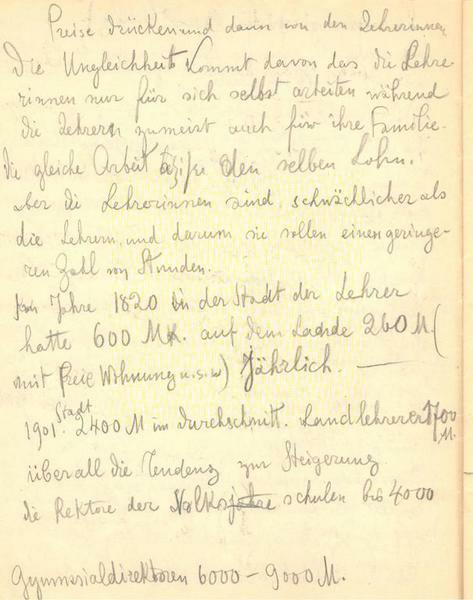 Preise drücken und dann von den Lehrerinnen
Die Ungleichheit kommt davon das die Lehre
rinnen nur für sich selbst arbeiten während
die Lehrern zumeist auch für ihre Familie.
die gleiche Arbeit den selben Lohn.
aber die Lehrerinnen sind, schwächlicher als
die Lehrern, und darum sie sollen einen geringe-
ren Zahl von Stunden.
Jahre 1820 in der Stadt der Lehrer
hatte 600 Mk. auf dem Lande 260 M. (
mit freie Wohnung u.s.w) Jährlich. —
1901. Stadt 2400 M im durchschnitt. Landlehrerer 1700
M.
überall die Tendenz zur Steigerung
die Rektore der Volks schulen bis 4000
Gymnesialdirektoren 6000 – 9000 M.